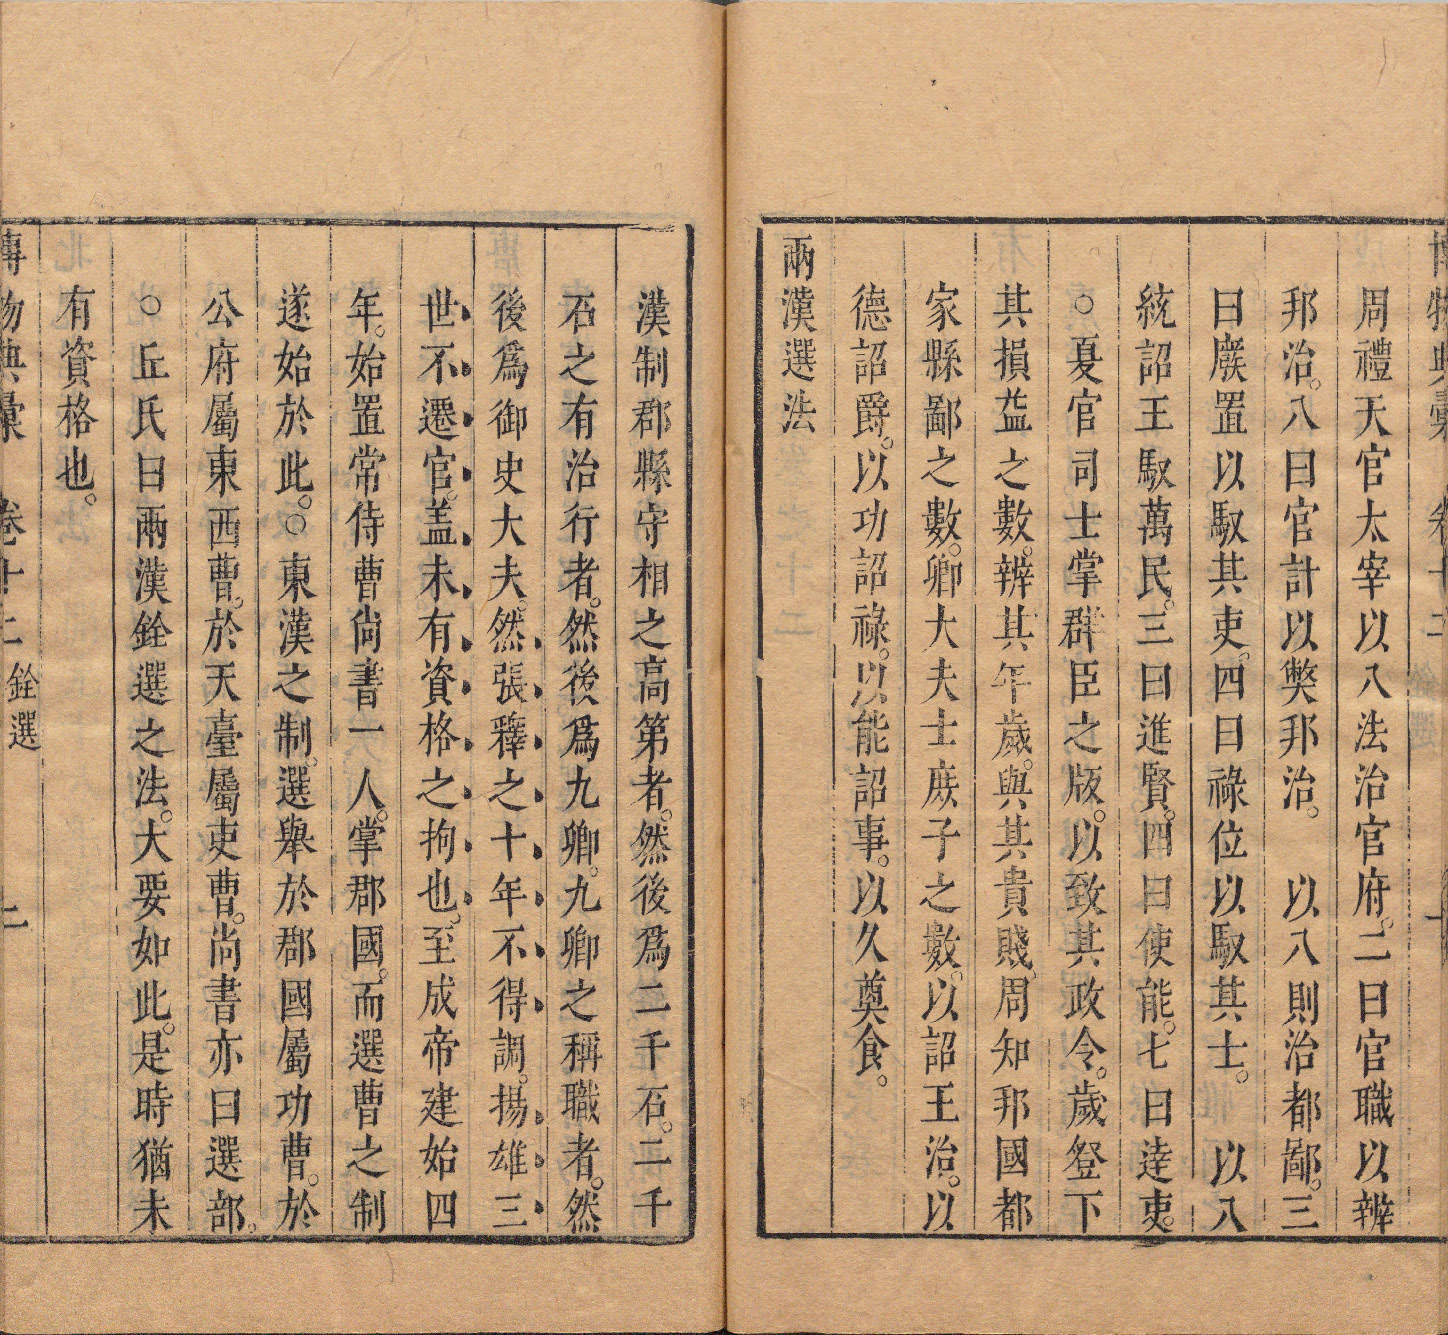 周禮天官太宰以八法治官府。二曰官職以辨
邦治。八曰官計以獘邦治。　以八則治都鄙。三
曰廢置以馭其吏。四曰祿位以馭其士。　以八
統詔王馭萬民。三曰進賢。四曰使能。七曰達吏。
○夏官司士掌群臣之版。以致其政令。歲登下
其損益之數。辨其年歲。與其貴賤。周知邦國都
家縣鄙之數。卿大夫士庶子之數。以詔王治。以
德詔爵。以功詔祿。以能詔事。以久奠食。
兩漢選法
漢制郡縣守相之高第者。然後爲二千石。二千
石之有治行者。然後爲九卿。九卿之稱職者。然
後爲御史大夫。然張釋之十年不得調。揚雄三
世不遷官。盖未有資格之拘也。至成帝建始四
年。始置常侍曹尙書一人。掌郡國。而選曹之制
遂始於此。○東漢之制。選舉於郡國屬功曹。於
公府屬東西曹。於天臺屬吏曹。尙書亦曰選部。
○丘氏曰兩漢銓選之法。大要如此。是時猶未
有資格也。
博物典彙　卷十二　銓選　二